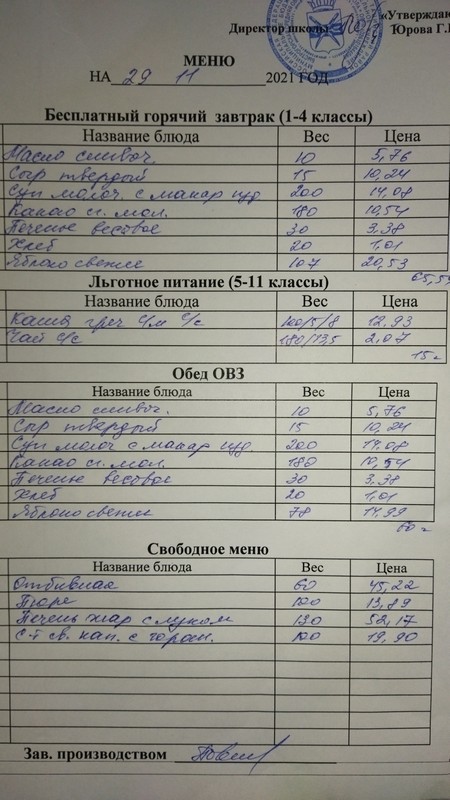 «Утверждаю
Директор школы Юрова Г.
МЕНЮ
НА 29 11 2021 ГОД
Бесплатный горячий завтрак (1-4 классы)
Название блюда Вес Цена
Масло сливоч. 10 5,76
Сыр твердый 15 10,24
Суп молоч. с макар изд 200 14,08
Какао сг. мол. 180 10,54
Печенье весовое 30 3,38
Хлеб 20 1,01
Яблоко свежее 107 20,53
65,5
Льготное питание (5-11 классы)
Название блюда Вес Цена
Каша греч с/м с/с 100/5/8 12,93
Чай с/с 180/13,5 2,07
15
Обед ОВЗ
Название блюда Вес Цена
Масло сливоч. 10 5,76
Сыр твердый 15 10,24
Суп молоч с макар изд. 200 14,08
Какао сг. мол. 180 10,54
Печенье весовое 30 3,38
Хлеб 20 1,01
Яблоко свежее 78 14,99
60
Свободное меню
Название блюда Вес Цена
Отбивная 60 45,22
Пюре 100 13,89
Печень жар с луком 130 52,17
С-т св. кап. с горош. 100 19,90
Зав. производством